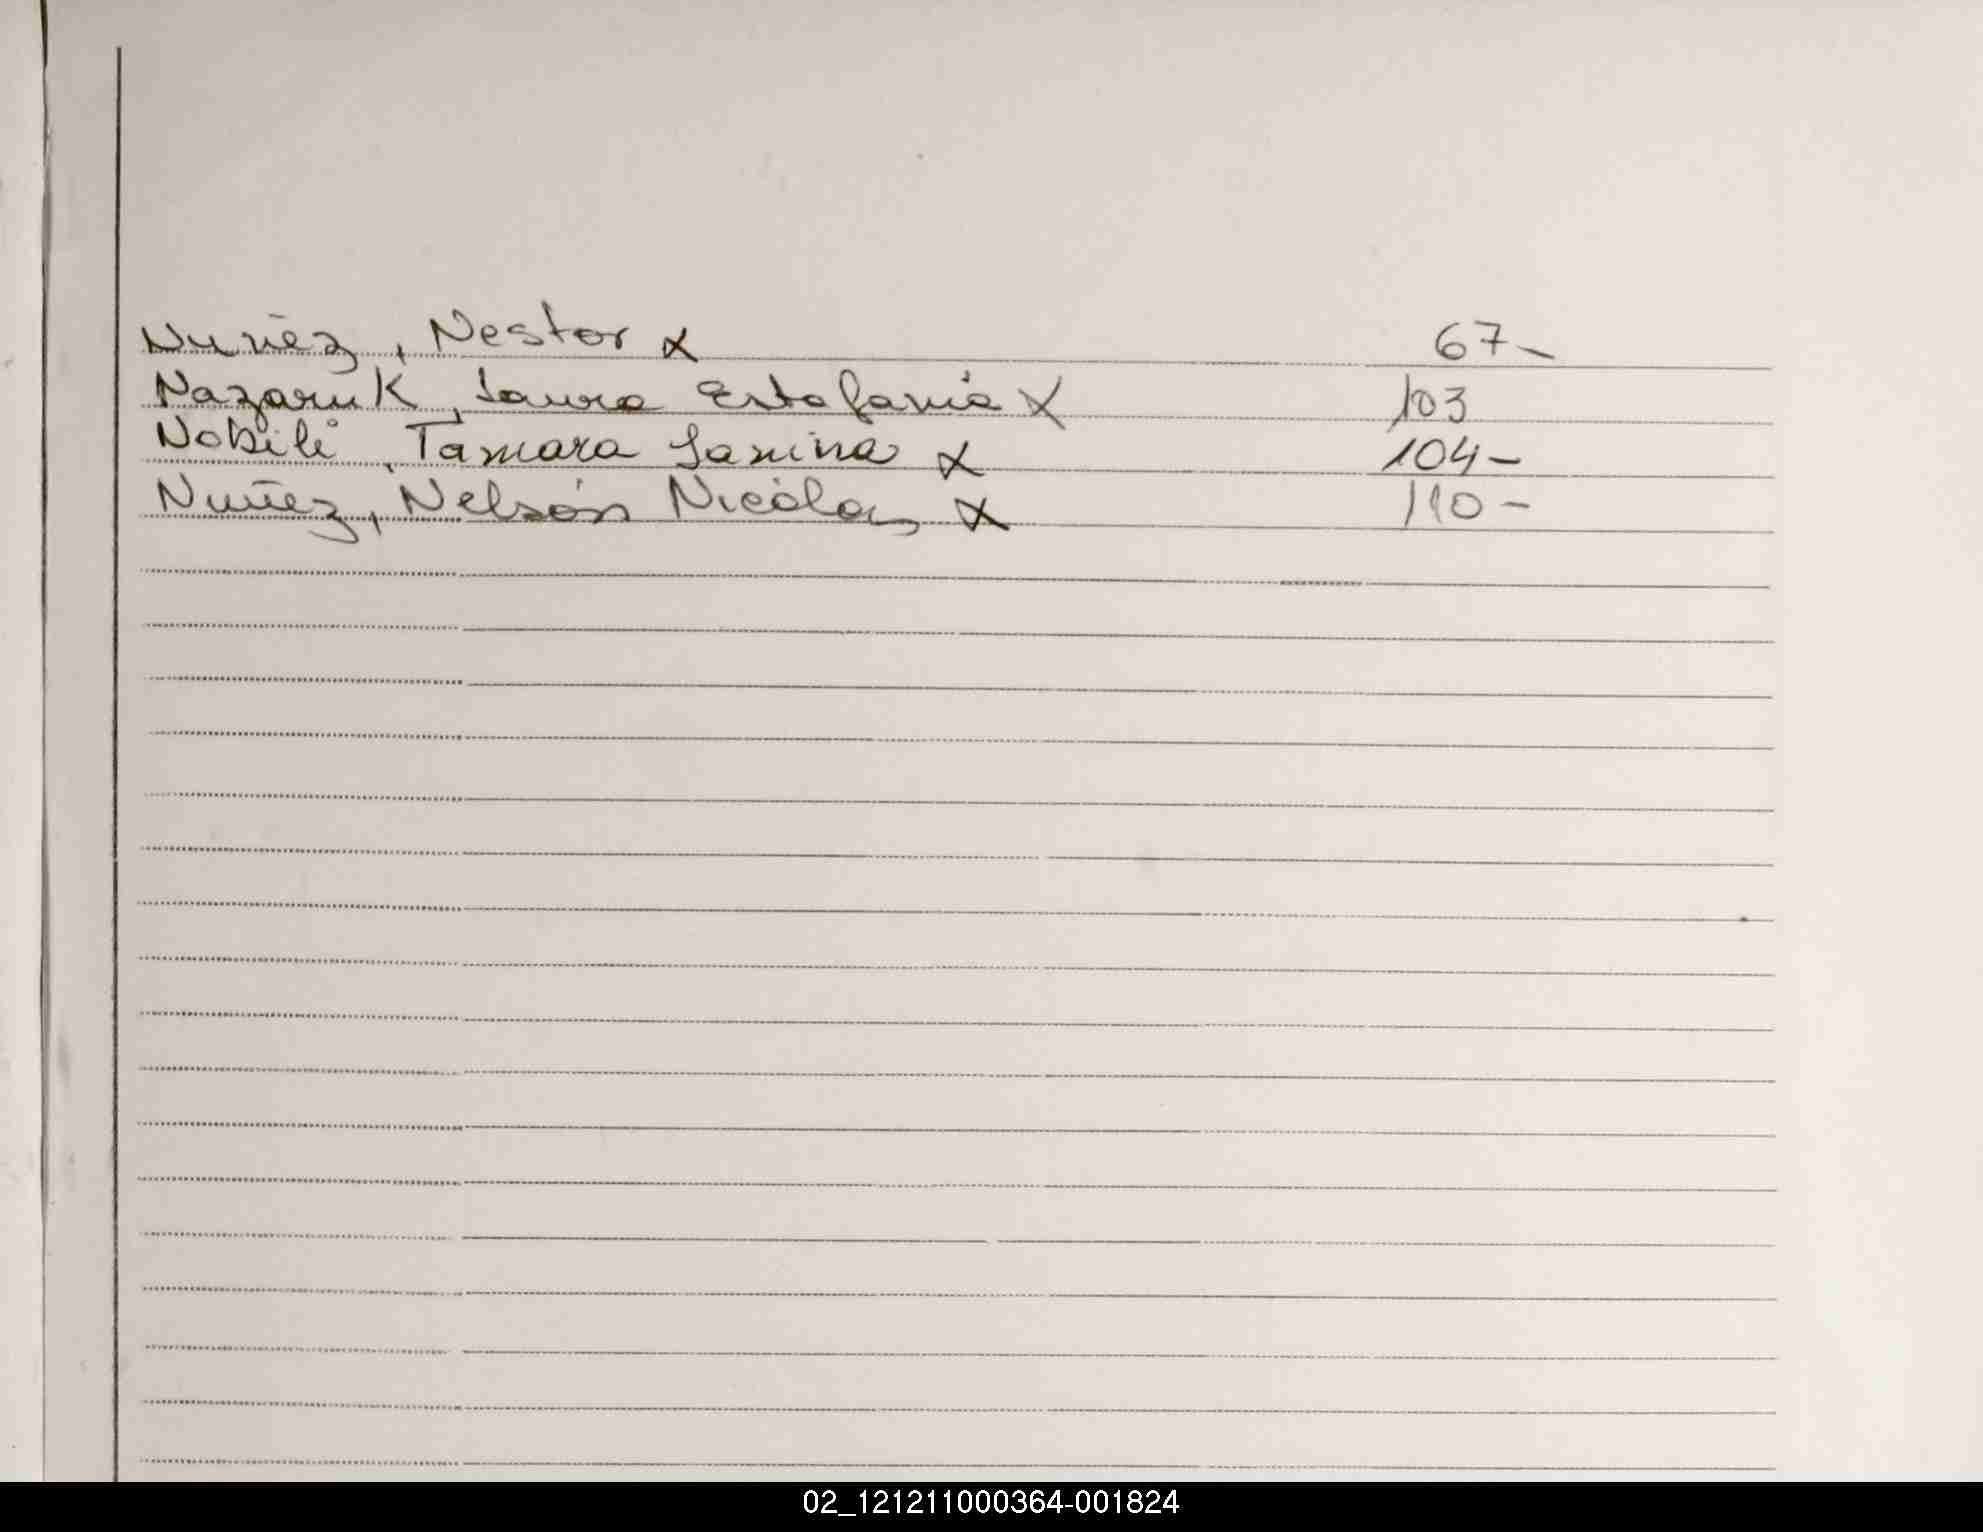 Nuñez, Nestor x 67-
Nazaruk, Laura Estefania x 103
Nobili, Tamara Janina x 104-
Nuñez, Nelsón Nicólas x 110-
02_121211000364-001824